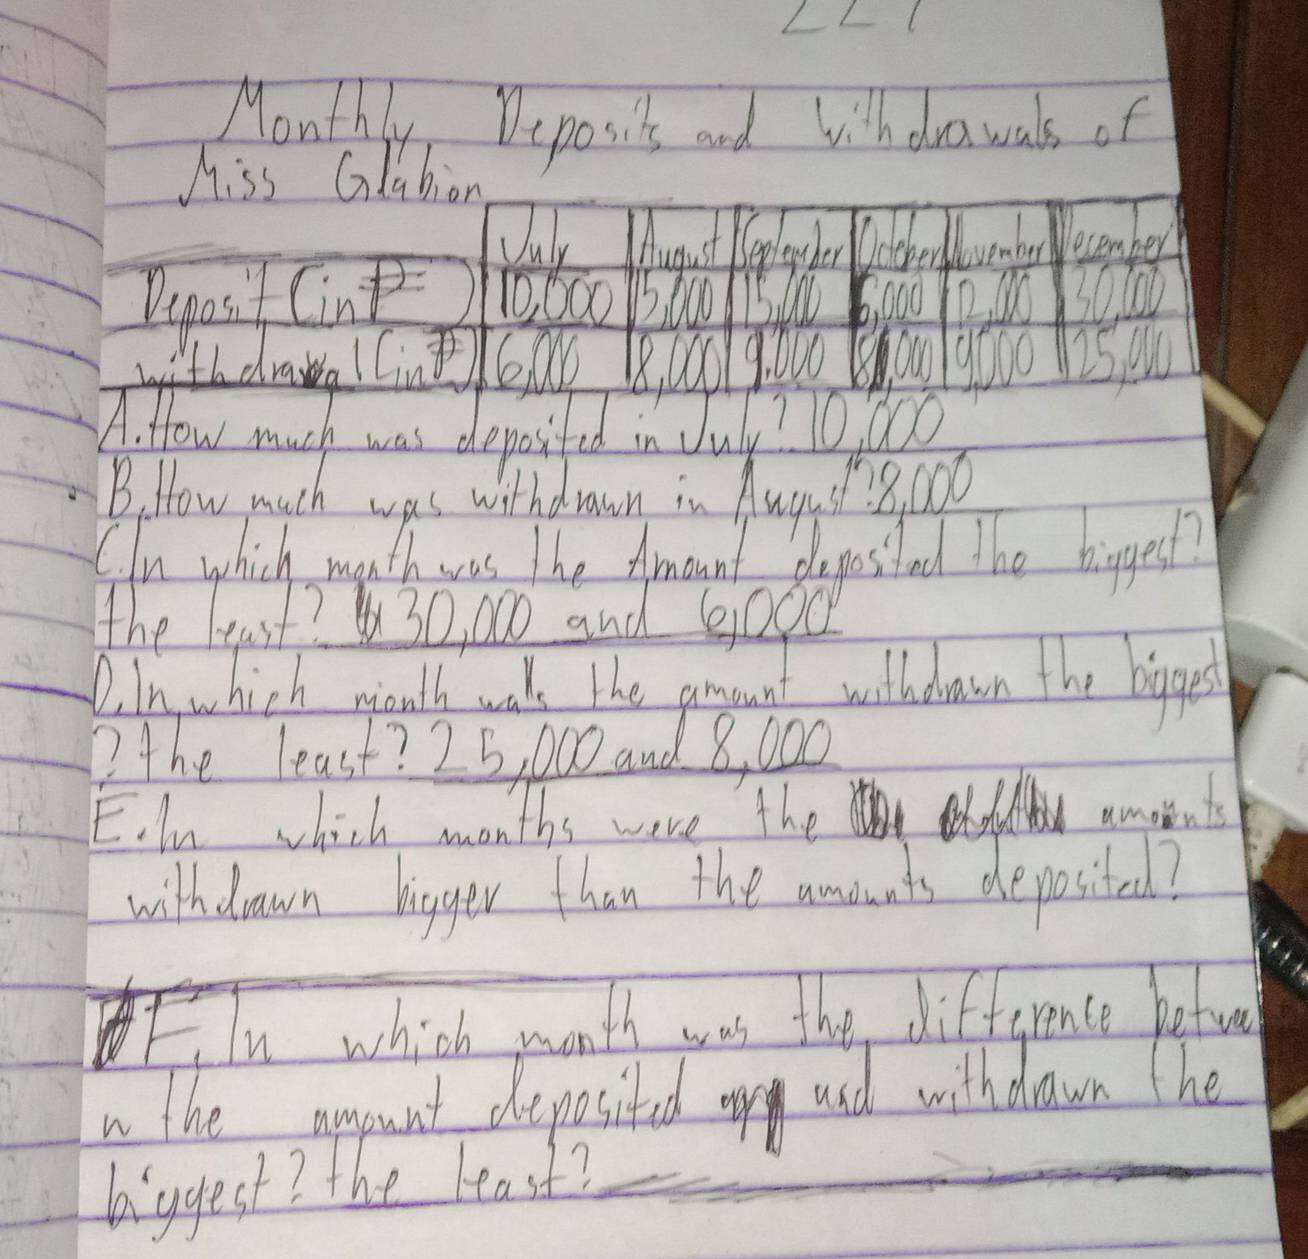 227
Monthly Deposits and Withdrawals of
Miss Glabion
July August September October November December
Deposit (in ₱) 10,000 15,000 15,000 6,000 12,000 30,000
withdrawal (in ₱) 6,000 8,000 9.000 8,000 9,000 25,000
A. How much was deposited in July? 10,000
B. How much was withdrawn in August? 8,000
C. In which month was the Amount deposited the biggest?
the least? 30,000 and 6,000
D. In which month was the amount withdrawn the biggest
? the least? 25,000 and 8,000
E. In which months were the amounts
withdrawn bigger than the amounts deposited?
F. In which month was the difference betwee
n the amount deposited and withdrawn the
biggest? the least?